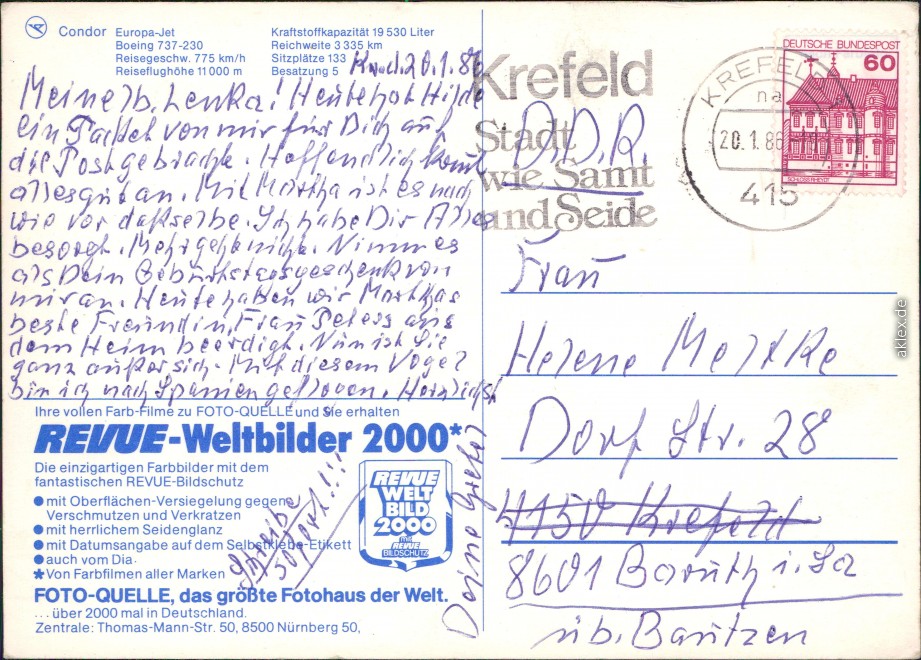 Condor Europa-Jet
Boeing 737-230
Reisegeschw. 775 km/h
Reiseflughöhe 11000 m
Kraftstoffkapazität 19 530 Liter
Reichweite 3 335 km
Sitzplätze 133
Besatzung 5
d. 20.1.86
Meine lb. Lenka! Heute hat Hilde
ein Packet von mir für Dich auf
die Post gebracht. Hoffendlich komt
alles gut an. Mit Martha ist es nach
wie vor dasselbe. Ich habe Dir Alles
besorgt. Mehr geht nicht. Nimm es
als Dein Geburtstagsgeschenk von
mir an. Heute haben wir Marthas
beste Freundin, Frau Peters aus
dem Heim beerdigt. Nun ist Sie
ganz außer sich. Mit diesem Vogel
bin ich nach Spanien geflogen. Herzlichst
Deine Grete
Schreibe
sofort!!!
Ihre vollen Farb-Filme zu FOTO-QUELLE und Sie erhalten
REVUE-Weltbilder 2000*
Die einzigartigen Farbbilder mit dem
fantastischen REVUE-Bildschutz
● mit Oberflächen-Versiegelung gegen
Verschmutzen und Verkratzen
● mit herrlichem Seidenglanz
● mit Datumsangabe auf dem Selbstklebe-Etikett
● auch vom Dia
* Von Farbfilmen aller Marken
REVUE
WELT
BILD
2000
mit
REVUE
BILDSCHUTZ
FOTO-QUELLE, das größte Fotohaus der Welt.
...über 2000 mal in Deutschland.
Zentrale: Thomas-Mann-Str. 50, 8500 Nürnberg 50,
Krefeld
Stadt
wie Samt
und Seide
KREFELD
na
20.1.86
415
DEUTSCHE BUNDESPOST
60
D.D.R
Frau
Helene Mertke
Dorf Str. 28
4150 Krefeld
8601 Baruth i. Sa
üb. Bautzen
aklex.de